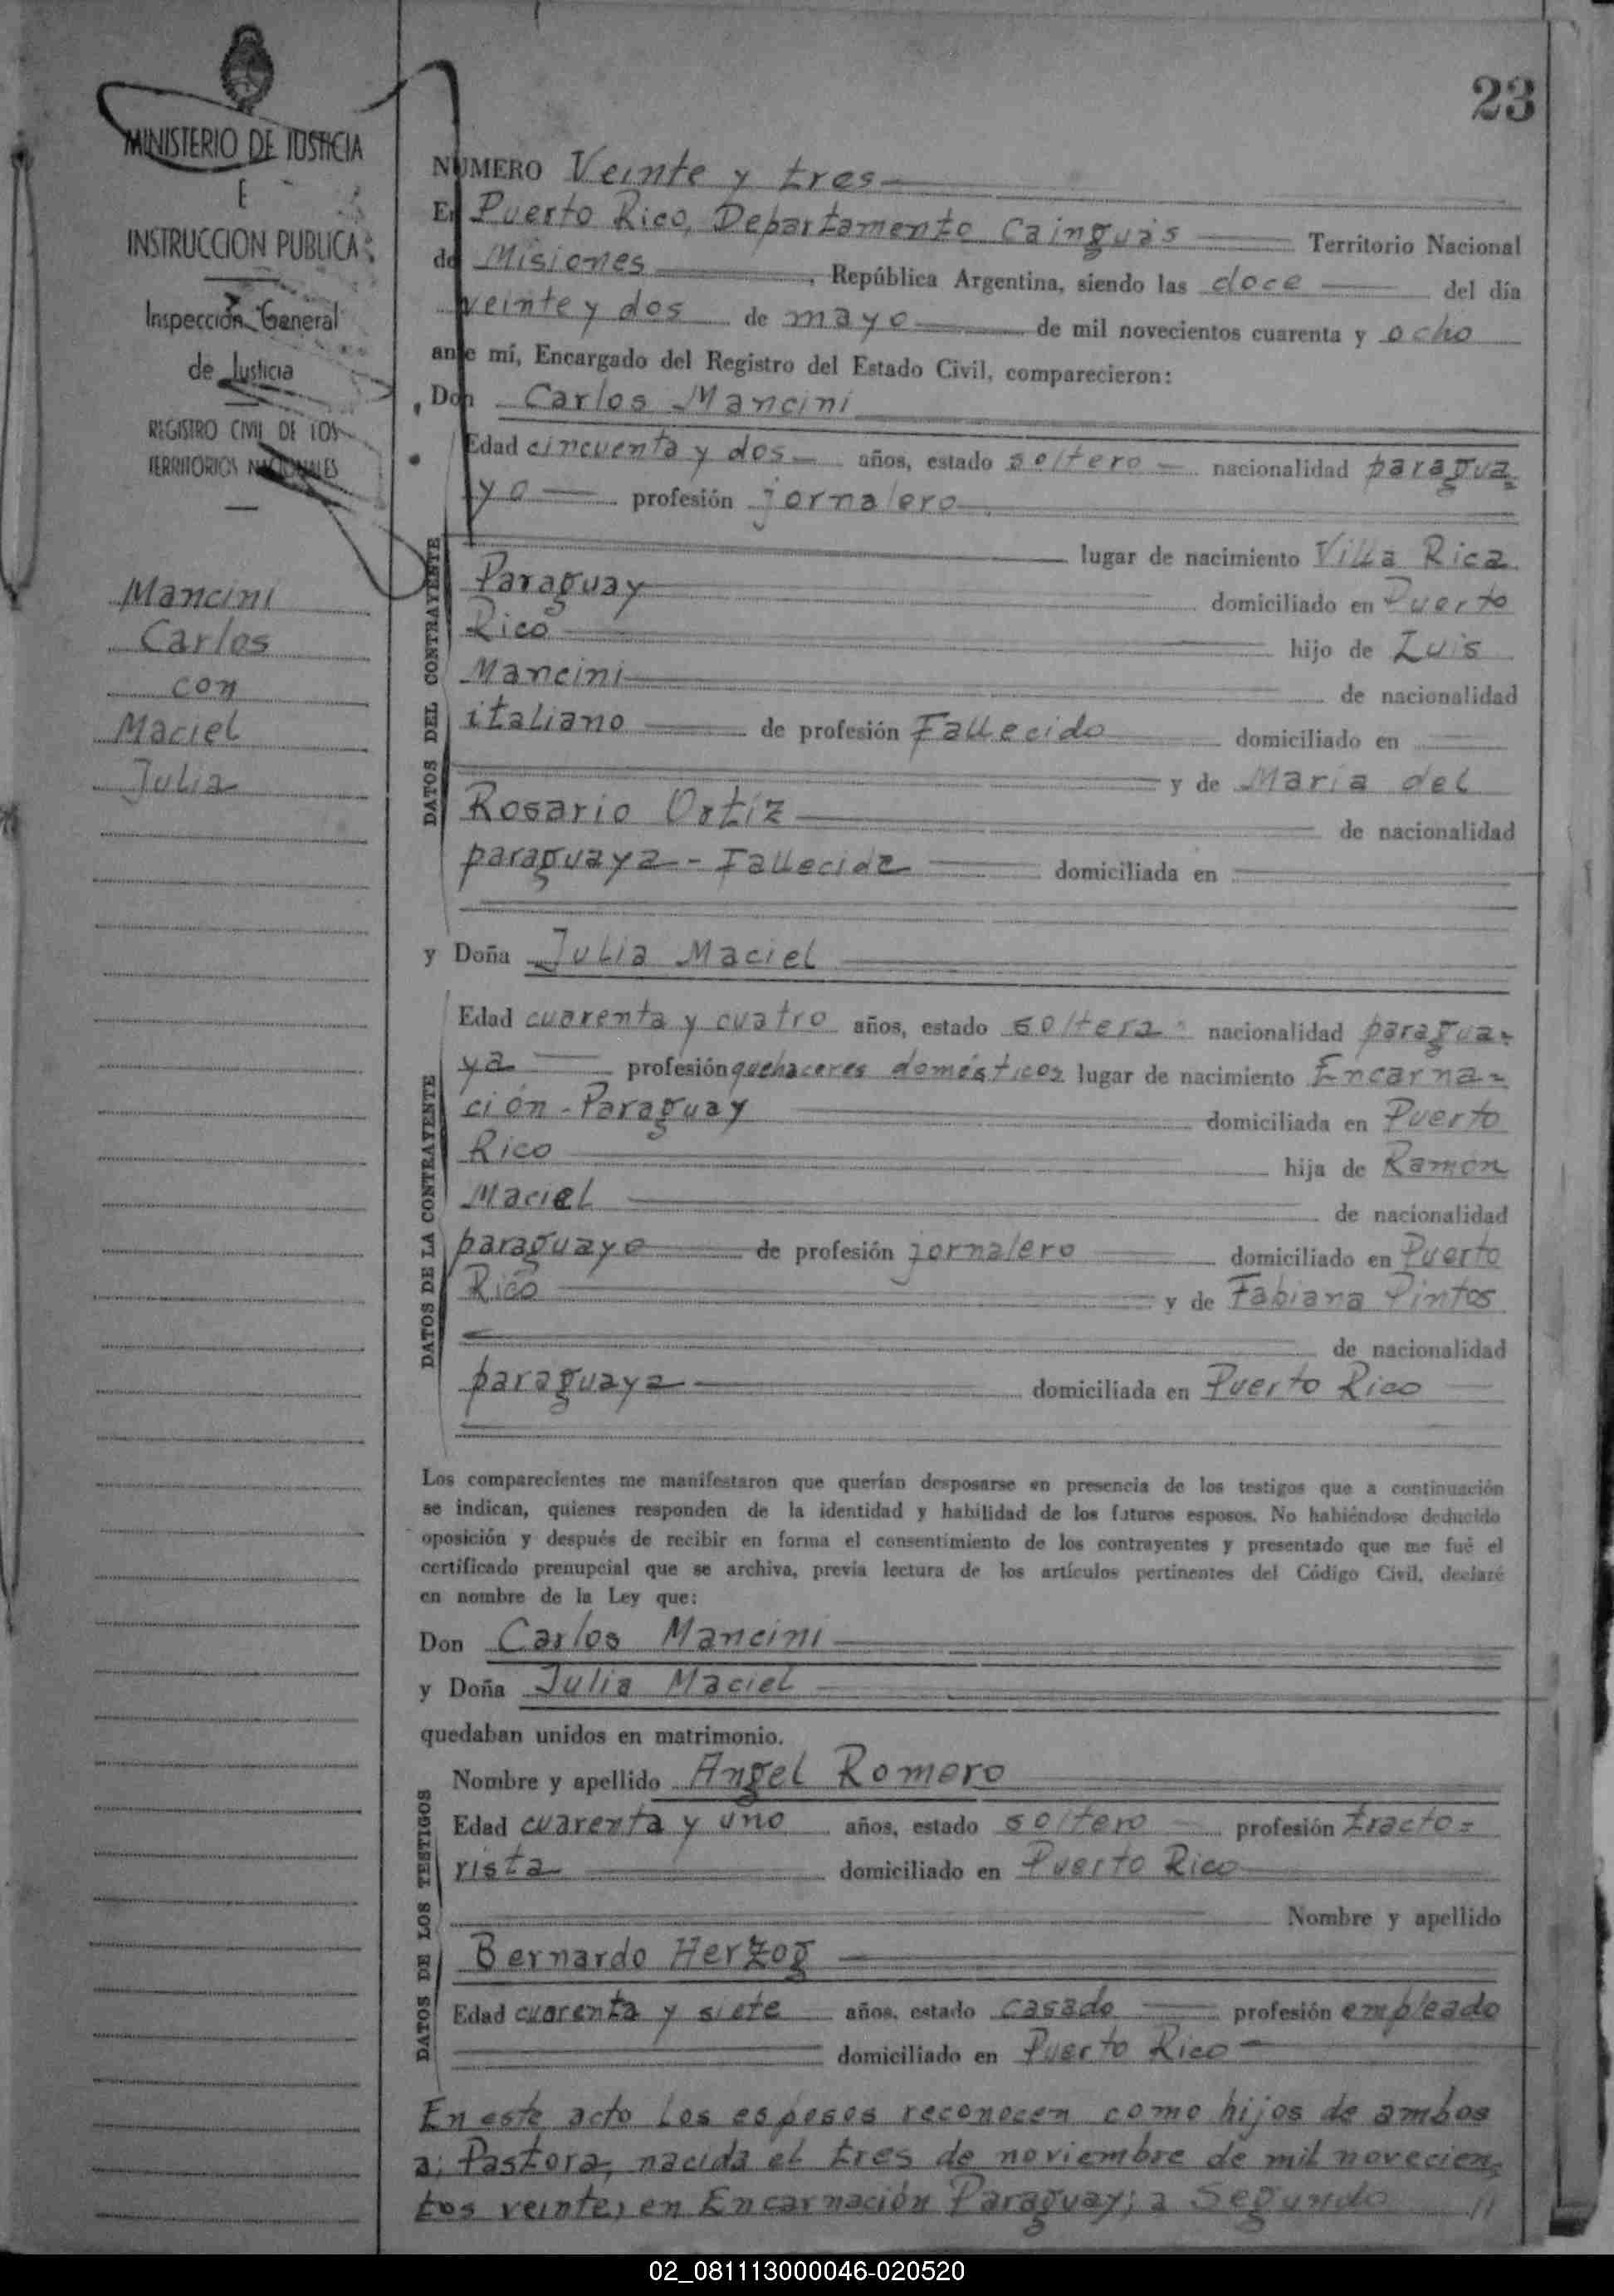 23
MINISTERIO DE JUSTICIA
E
INSTRUCCION PUBLICA
Inspección General
de Justicia
REGISTRO CIVIL DE LOS
TERRITORIOS NACIONALES
Mancini
Carlos
con
Maciel
Julia
NUMERO Veinte y tres
En Puerto Rico, Departamento Cainguás Territorio Nacional
de Misiones, República Argentina, siendo las doce del día
veinte y dos de mayo de mil novecientos cuarenta y ocho
ante mí, Encargado del Registro del Estado Civil, comparecieron:
Don Carlos Mancini
DATOS DEL CONTRAYENTE
Edad cincuenta y dos años, estado soltero nacionalidad paragua=
yo profesión jornalero
lugar de nacimiento Villa Rica
Paraguay domiciliado en Puerto
Rico hijo de Luis
Mancini de nacionalidad
italiano de profesión Fallecido domiciliado en
y de María del
Rosario Ortíz de nacionalidad
paraguaya - Fallecida domiciliada en
y Doña Julia Maciel
DATOS DE LA CONTRAYENTE
Edad cuarenta y cuatro años, estado soltera nacionalidad paragua=
ya profesión quehaceres domésticos lugar de nacimiento Encarna=
ción - Paraguay domiciliada en Puerto
Rico hija de Ramón
Maciel de nacionalidad
paraguayo de profesión jornalero domiciliado en Puerto
Rico y de Fabiana Pintos
de nacionalidad
paraguaya domiciliada en Puerto Rico
Los comparecientes me manifestaron que querían desposarse en presencia de los testigos que a continuación
se indican, quienes responden de la identidad y habilidad de los futuros esposos. No habiéndose deducido
oposición y después de recibir en forma el consentimiento de los contrayentes y presentado que me fué el
certificado prenupcial que se archiva, previa lectura de los artículos pertinentes del Código Civil, declaré
en nombre de la Ley que:
Don Carlos Mancini
y Doña Julia Maciel
quedaban unidos en matrimonio.
DATOS DE LOS TESTIGOS
Nombre y apellido Angel Romero
Edad cuarenta y uno años, estado soltero profesión tracto=
rista domiciliado en Puerto Rico
Nombre y apellido
Bernardo Herzog
Edad cuarenta y siete años, estado casado profesión empleado
domiciliado en Puerto Rico
En este acto los esposos reconocen como hijos de ambos
a; Pastora, nacida el tres de noviembre de mil novecien=
tos veinte, en Encarnación Paraguay; a Segundo //
02_081113000046-020520